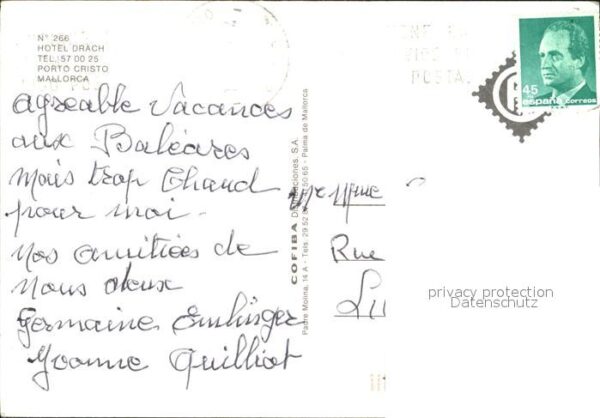 Nº 266
HOTEL DRACH
TEL. 57 00 25
PORTO CRISTO
MALLORCA
agréable Vacances
aux Baléares
mais trop Chaud
pour moi.
nos amitiées de
nous deux
Germaine
Yvonne Quilliot
COFIBA DISTRIBUCIONES, S.A.
Padre Molina, 14 A - Tels. 29 52 50 65 - Palma de Mallorca
POSTAL
45
españa correos
Mr Mme
Rue
privacy protection
Datenschutz